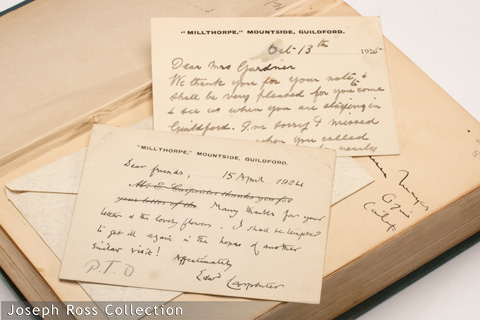 "MILLTHORPE," MOUNTSIDE, GUILDFORD.
Oct 13th 1925
Dear Mrs Gardner
We thank you for your note &
shall be very pleased for you come
to see us when you are staying in
Guildford. I'm sorry I missed
when you called
be nearly
"MILLTHORPE," MOUNTSIDE, GUILDFORD.
15 April 1924
Dear friends,
Mr E Carpenter thanks you for
your letter of the Many thanks for your
letter & the lovely flowers. I shall be tempted
to get ill again in the hopes of another
similar visit!
Affectionately
Edwd Carpenter
P.T.O
Ojai
Calif
Joseph Ross Collection